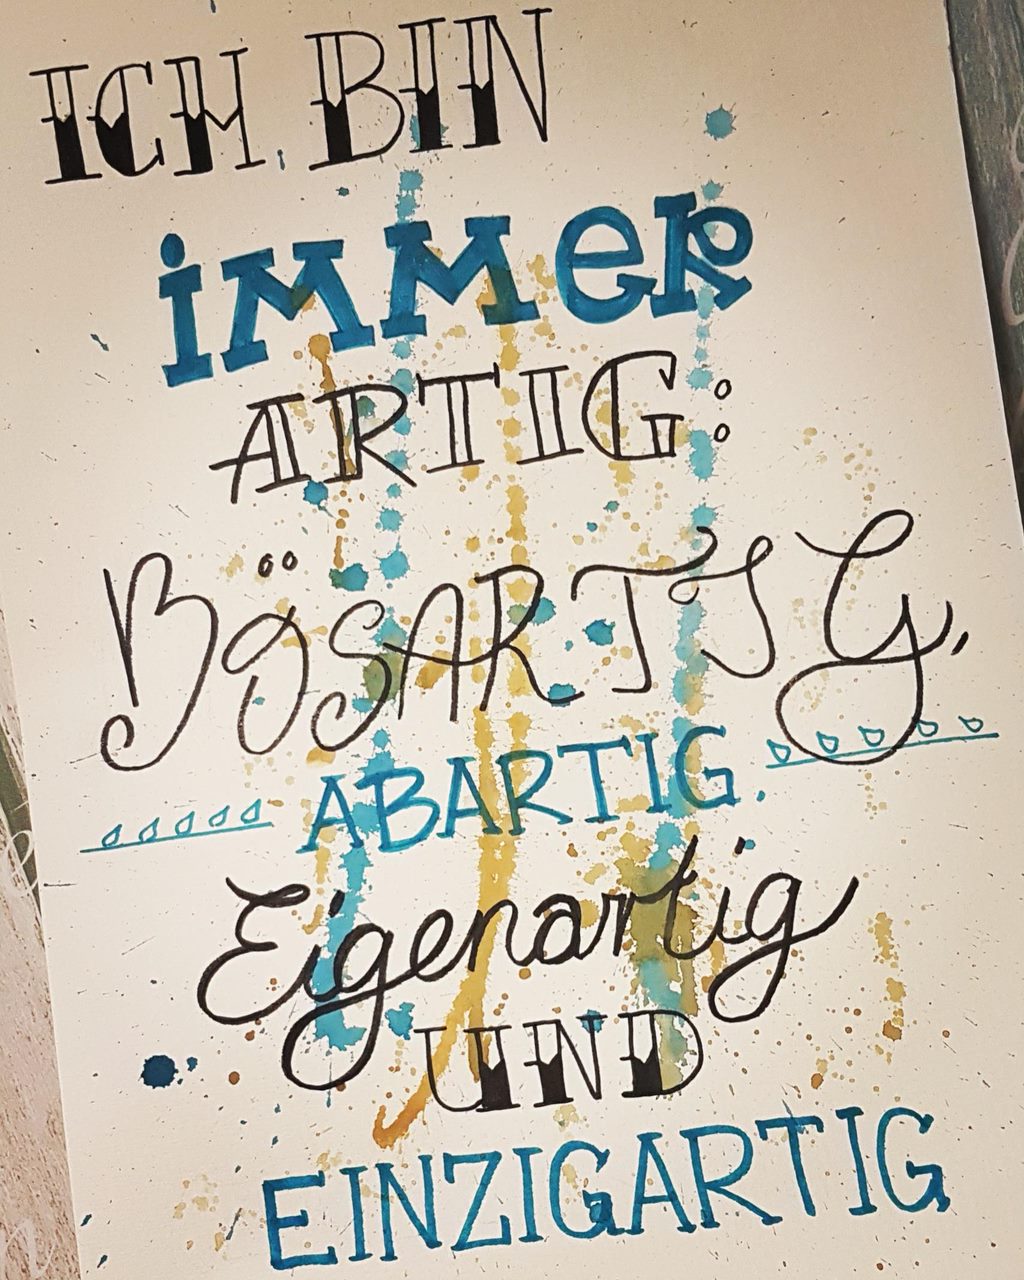 ICH BIN
immer
ARTIG:
BöSARTIG,
ABARTIG,
Eigenartig
UND
EINZIGARTIG